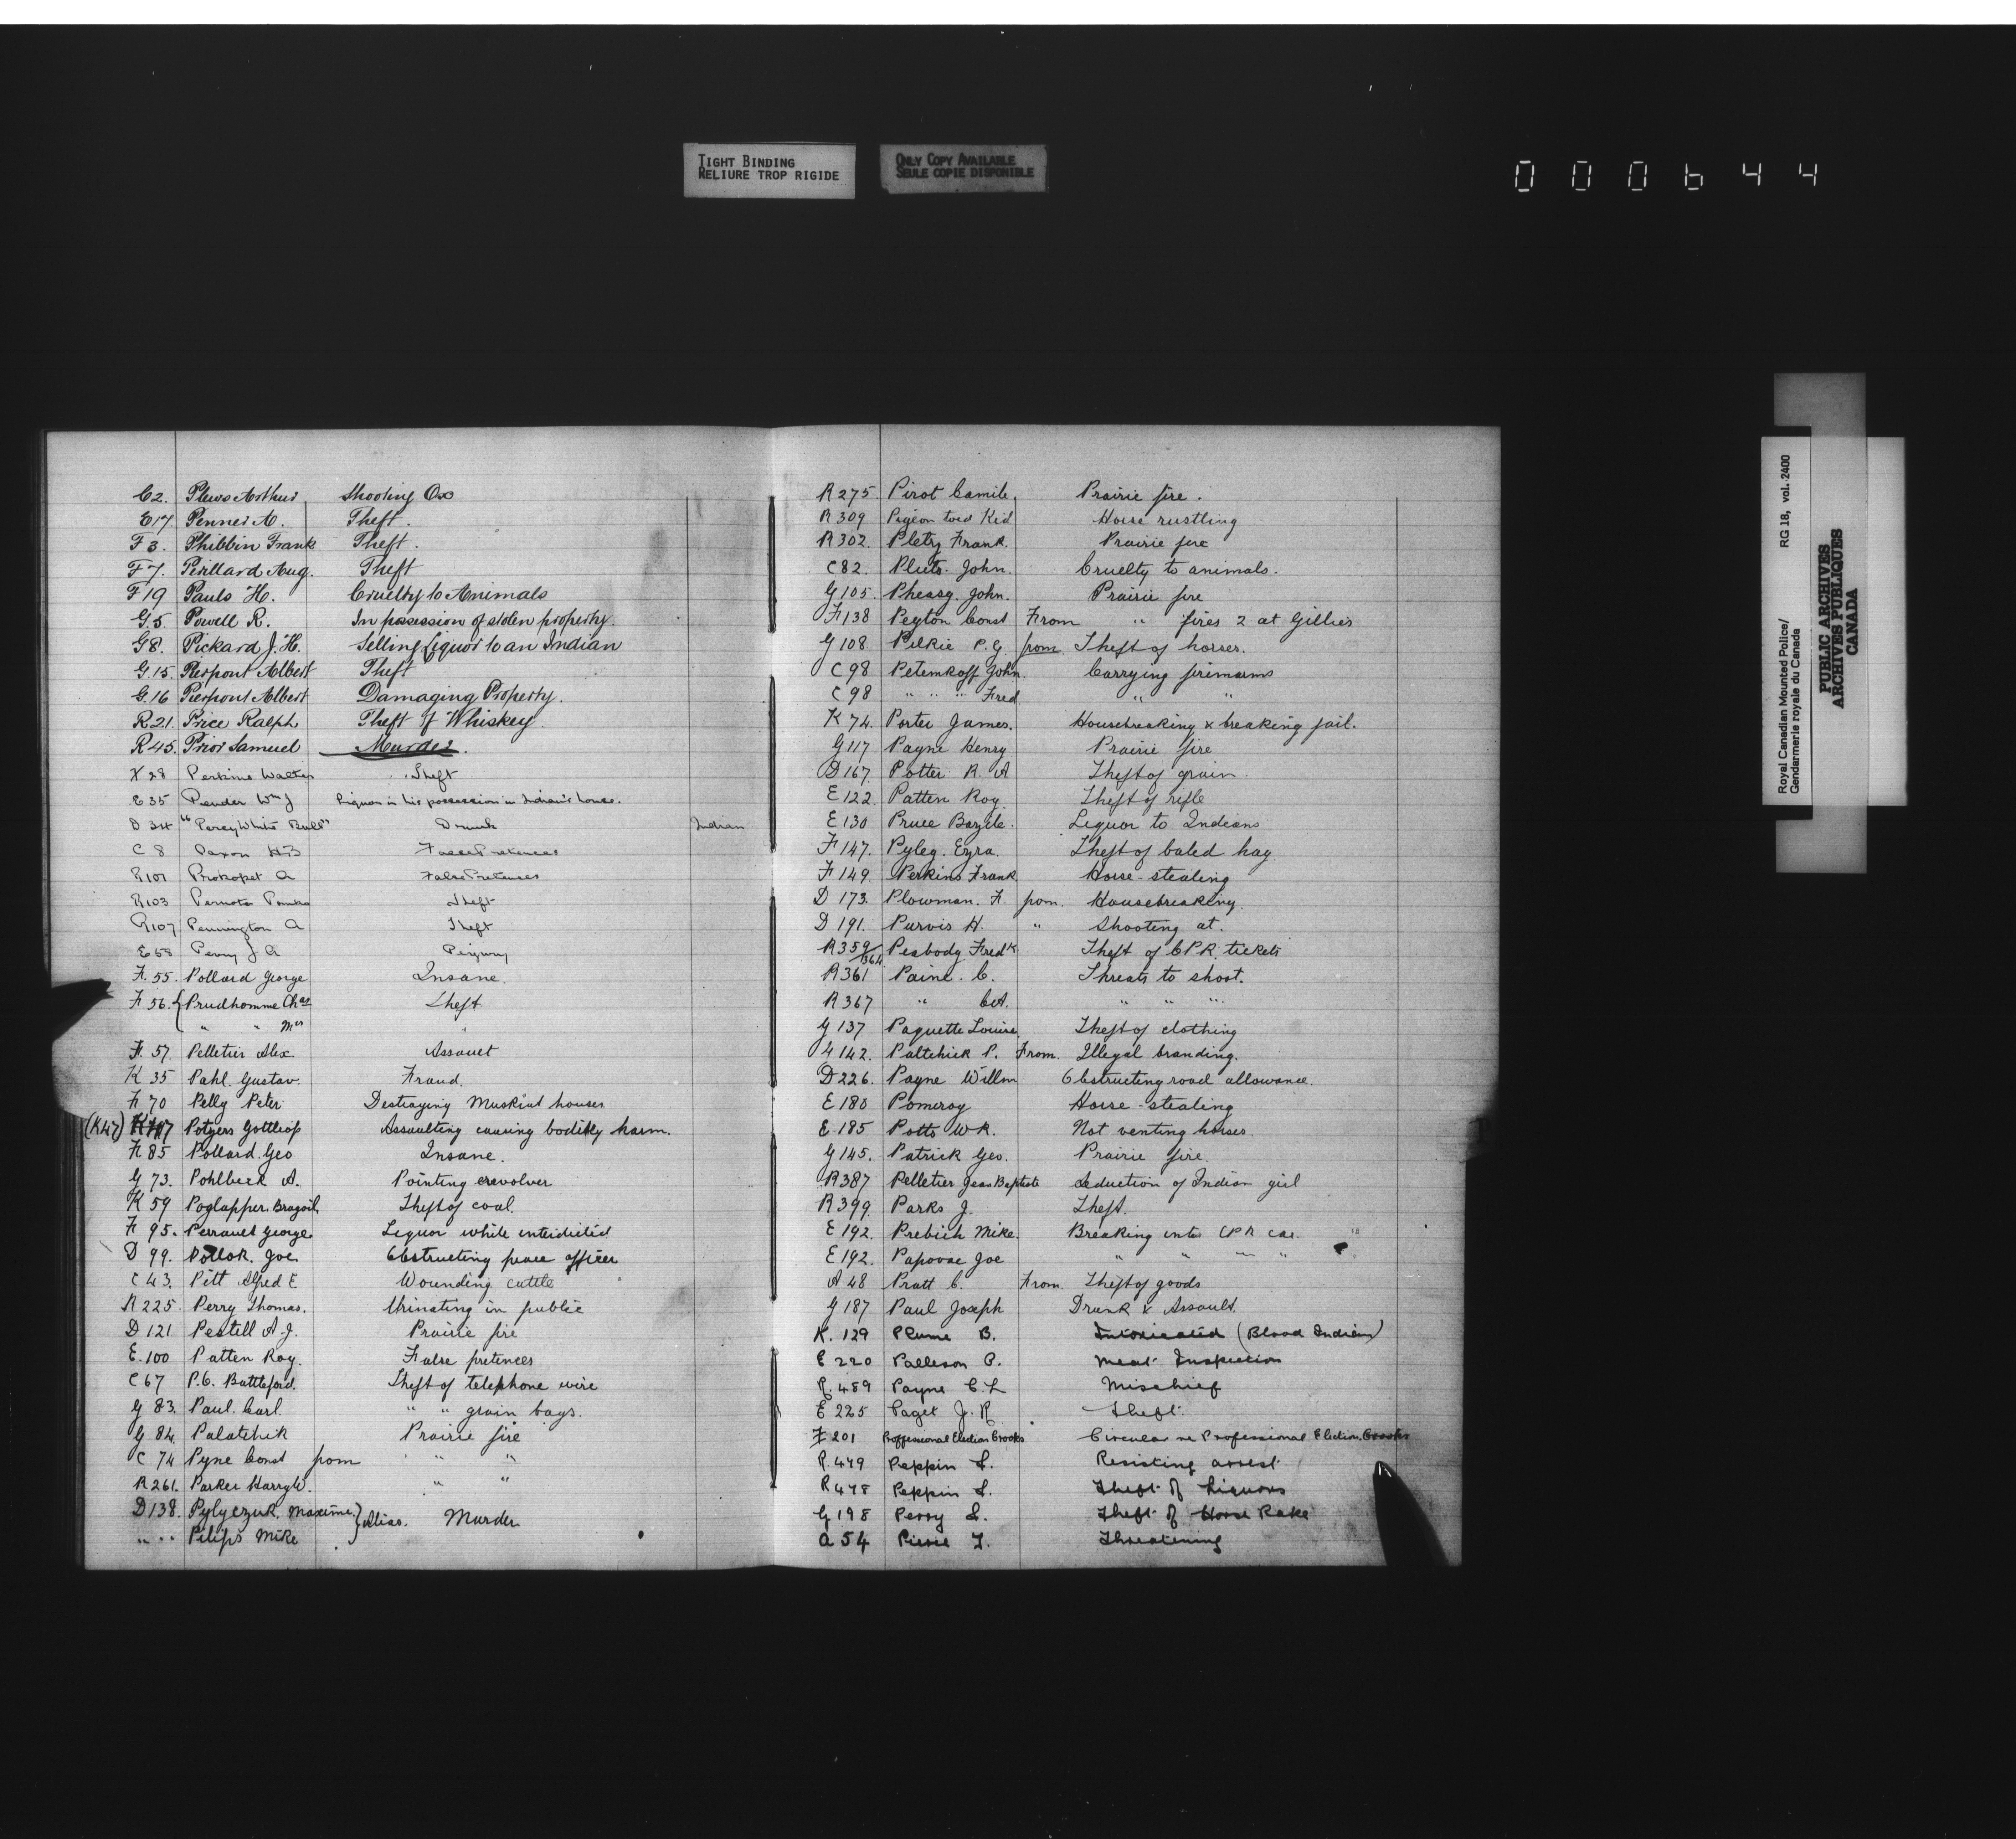 TIGHT BINDING
RELIURE TROP RIGIDE
ONLY COPY AVAILABLE
SEULE COPIE DISPONIBLE
000644
C2. Plews Arthur Shooting Ox
E17. Penner A. Theft.
F3. Phibbin Frank Theft.
F7. Perillard Aug. Theft
F19 Pauls H. Cruelty to Animals
G.5. Powell R. In possession of stolen property.
G8. Pickard J.H. Selling Liquor to an Indian
G.15. Pierpont Albert Theft
G.16 Pierpont Albert Damaging Property.
R21. Price Ralph Theft of Whiskey
R45. Prior Samuel Murder.
K 28 Perkins Walter Theft
E35 Pender Wm J Liquor in his possession in Indian's house.
D 34 "Percy White Bull" Drunk Indian
C 8 Paxon H.B False Pretences
R101 Prokopet A False Pretenses
R103 Theft
R107 Pennington A Theft
E58 Perry J A Perjury
F.55. Pollard George Insane.
F.56. { Prudhomme Chas Theft
" " Mrs "
F. 57. Pelletier Alex. Assault
K 35 Pahl. Gustav. Fraud.
F 70 Pelly Peter Destroying Muskrat houses
(K47) Potgers Gottliop Assaulting causing bodily harm.
F 85 Pollard. Geo Insane.
G 73. Pohlbeck A. Pointing revolver
K 59 Poglapper Theft of coal.
F 95. Perrault George. Liquor while interdicted
D 99. Pollok. Joe. Obstructing peace officer
C 43. Pitt Alfred E Wounding cattle
R 225. Perry Thomas. Urinating in public
D 121 Pestill A.J. Prairie fire
E.100 Patten Roy. False pretences
C 67 P.C. Battleford. Theft of telephone wire
G 83. Paul. Carl. " " grain bags.
G 84. Palatchik Prairie fire
C 74 Pyne Const from " "
R 261. Parker Harry W. " "
D138. Pylyczuk. Maxime. } Alias. Murder
" " Pilips Mike
R275. Pirot Camile. Prairie fire.
R 309 Pigeon toed Kid Horse rustling
R 302. Pletzy Frank. Prairie fire
C82. Pluto. John. Cruelty to animals.
G105. Pheasy. John. Prairie fire
F138 Peyton Const From " fires 2 at Gillies
G 108. Pilkie P.G. from Theft of horses.
C 98 Petemkoff John. Carrying firearms
C 98 " " " Fred " "
K 74. Porter James. Housebreaking & breaking jail.
G117 Payne Henry Prairie fire
D167. Potter R. A Theft of grain.
E 122. Patten Roy. Theft of rifle
E 130 Pruce Bazile. Liquor to Indians
F 147. Pyley. Ezra. Theft of baled hay
F 149. Perkins Frank Horse-stealing
D 173. Plowman. F. from. Housebreaking.
D 191. Purvis H. " Shooting at.
R359/364 Peabody Fredk Theft of CPR. tickets
R361 Paine. C. Threats to shoot.
R367 " C.A. " " "
G 137 Paquette Louise. Theft of clothing
G 142. Paltchick P. From. Illegal branding.
D226. Payne Willm Obstructing road allowance.
E 180 Pomeroy Horse-stealing
E.185 Potts W.R. Not venting horses.
G145. Patrick Geo. Prairie fire.
R387 Pelletier Jean Baptiste Seduction of Indian girl
R 399. Parks J. Theft.
E 192. Prebich Mike. Breaking into CPR car. "
E192. Papovac Joe " " " "
A 48 Pratt C. From. Theft of goods
G 187 Paul Joseph Drunk & Assault.
K. 129 Plume B. Intoxicated (Blood Indian)
E 220 Palleson P. Meat Inspection
R.489 Payne C.L Mischief
E 225 Paget J.R. Theft.
F 201 Proffessional Election Crooks Circular re Professional Election Crooks
R.479 Peppin L. Resisting arrest
R478 Peppin L. Theft of Liquors
G 198 Perry L. Theft of Horse Rake
A 54 Pierre T. Threatening
Royal Canadian Mounted Police/ RG 18, vol. 2400
Gendarmerie royale du Canada
PUBLIC ARCHIVES
ARCHIVES PUBLIQUES
CANADA